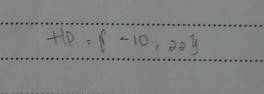 HP = { -10, 22 }